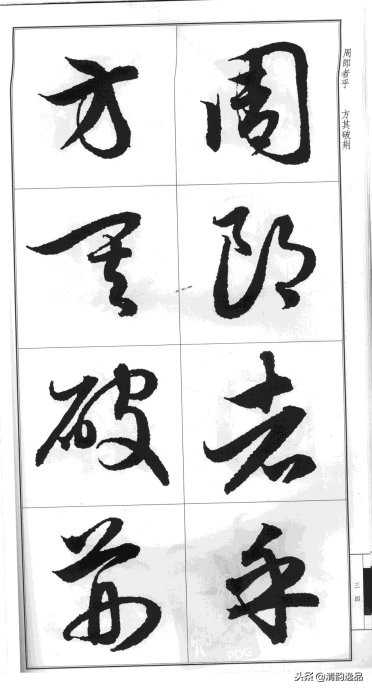 周郎者乎
方其破荆
周郎者乎 方其破荆
三四
PDG
头条@清韵逸品